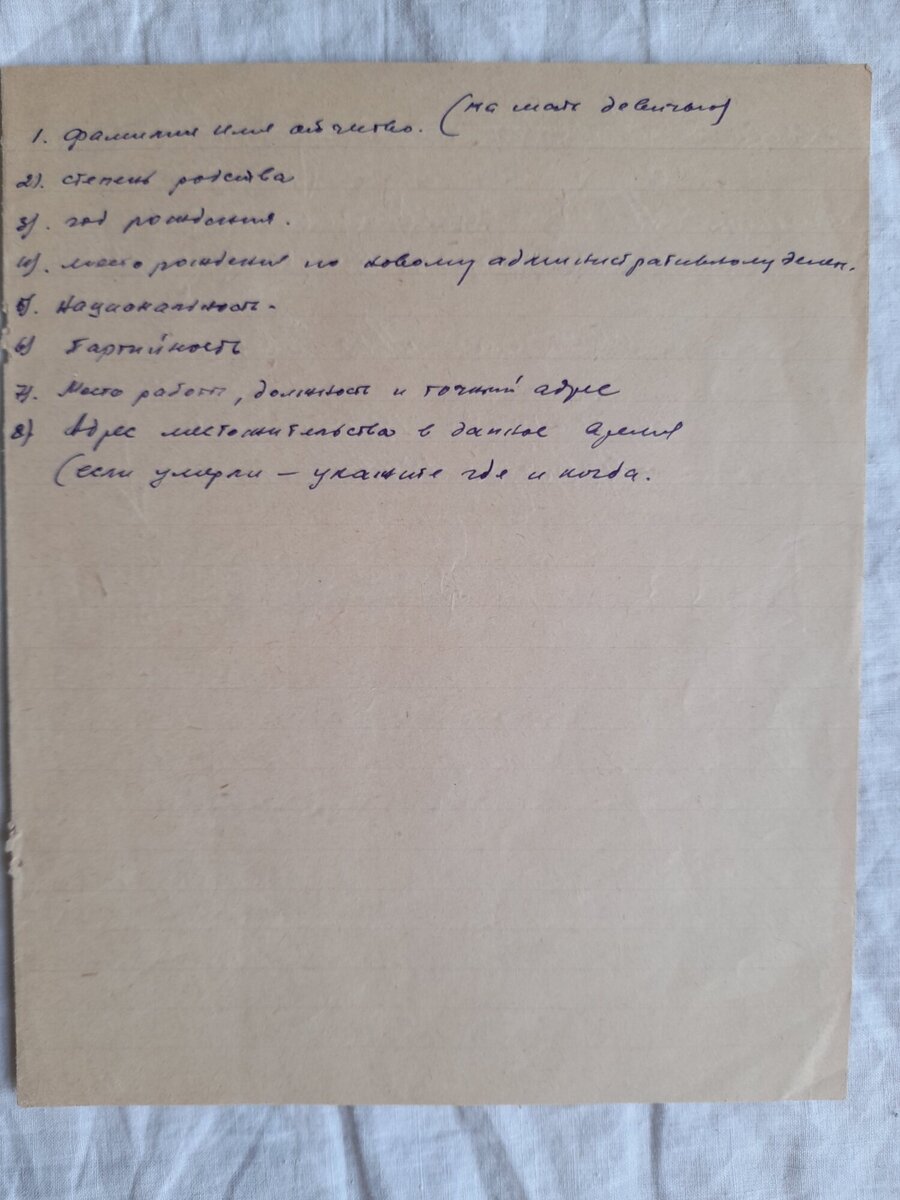 1. Фамилия имя отчество. (на мать девичью)
2). степень родства
3). год рождения.
4). место рождения по новому административному делен.
5). Национальность.
6) Партийность
7). Место работы, должность и точный адрес
8). Адрес местожительства в данное время
(если умерли – укажите где и когда.